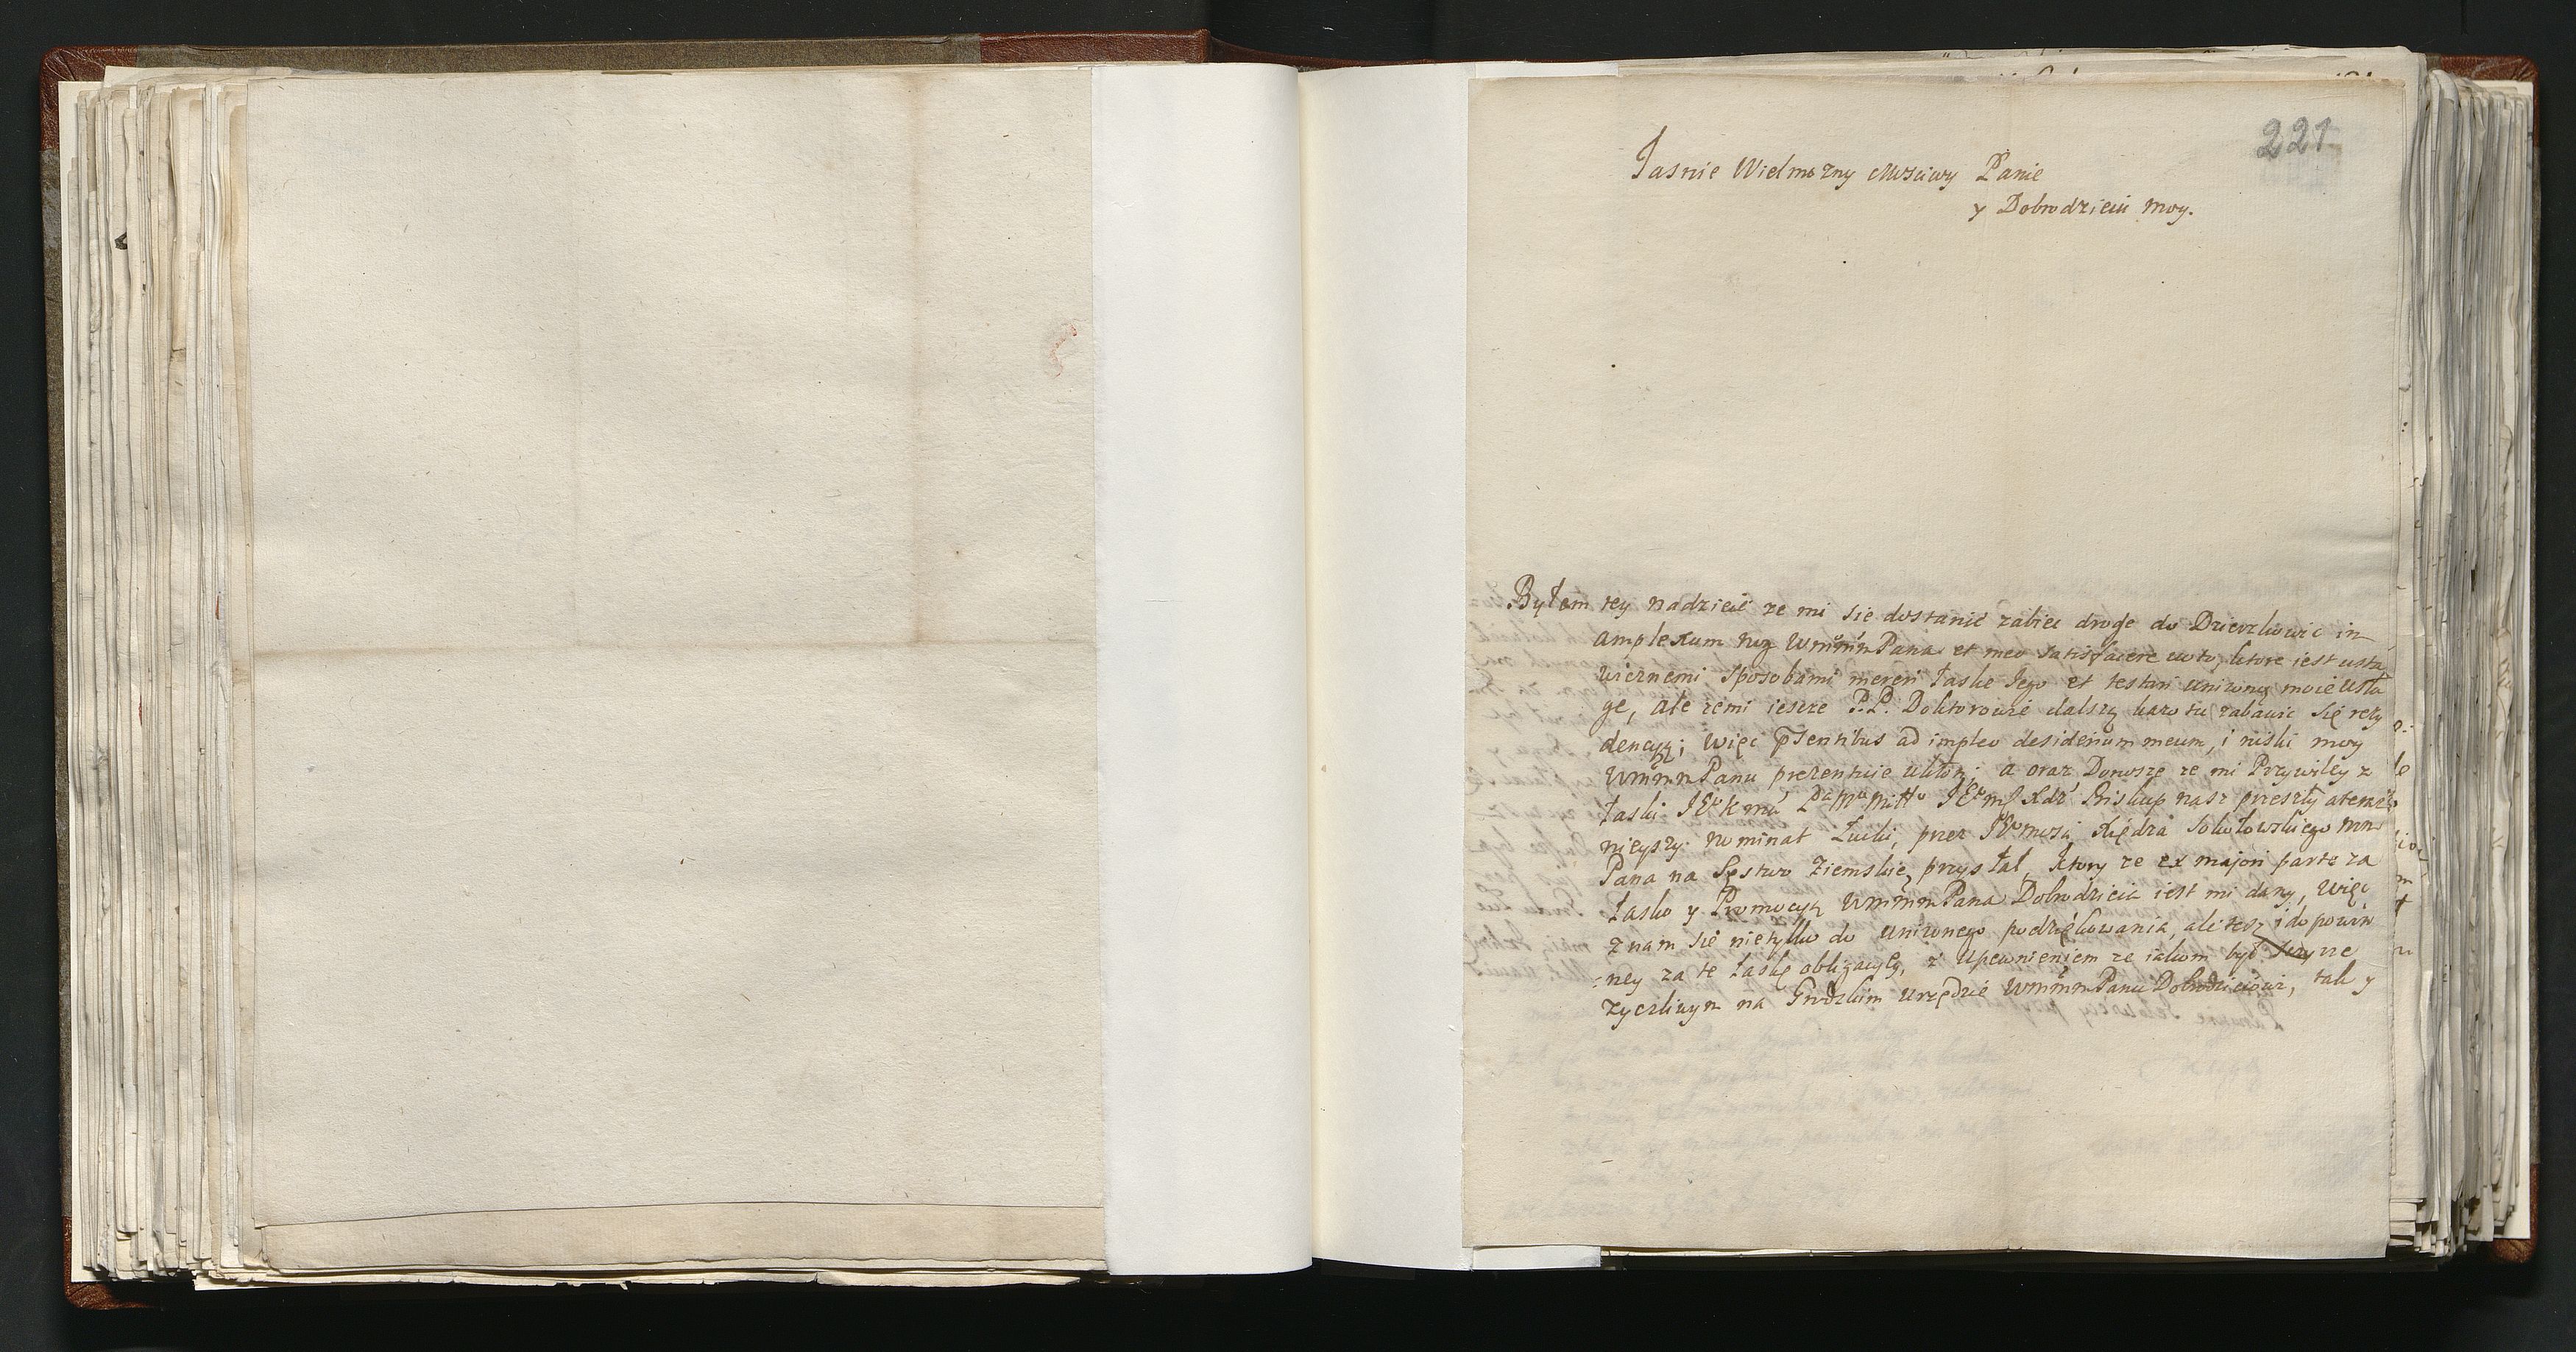 221
Jasnie Wielmozny Mosciwy Panie
y Dobrodzieiu moy.
Byłem tey nadzieie ze mi się dostanie zabiec droge do Dzierzkowic in
amplexum nog WmmmPana et meo satisfacere voto, ktore iest usta
wicznemi sposobami mereri łaske Jego et testari unizoną moię usłu
gę, ale zemi ieszcze P.P. Doktorowie dalszą każo tu zabawic się rezy
dencyą; więc psentibus ad impleo desiderium meum, i niski moy
WmmmPanu prezentuię ukłon; a oraz Donoszę ze mi Przywiley z
łaski JEo K mci Pa Mo Mitto Xdz Biskup nasz przeszły a teraz
nieyszy nominat Łucki, przez Xiędza Sokołowskiego mm
Pana na Sęstwo Ziemskie przysłał, ktory ze ex majori parte za
łasko y Promocyą WmmmPana Dobrodzieia iest mi dany, więc
znam się nietylko do unizonego podziękowania, ale tesz i do powin
ney za tę łaskę obligacyi, z upewnieniem ze iakom był szczyrze
zyczliwym na Grodzkim urzędzie WmmmPanu Dobrodzieiowi, tak y